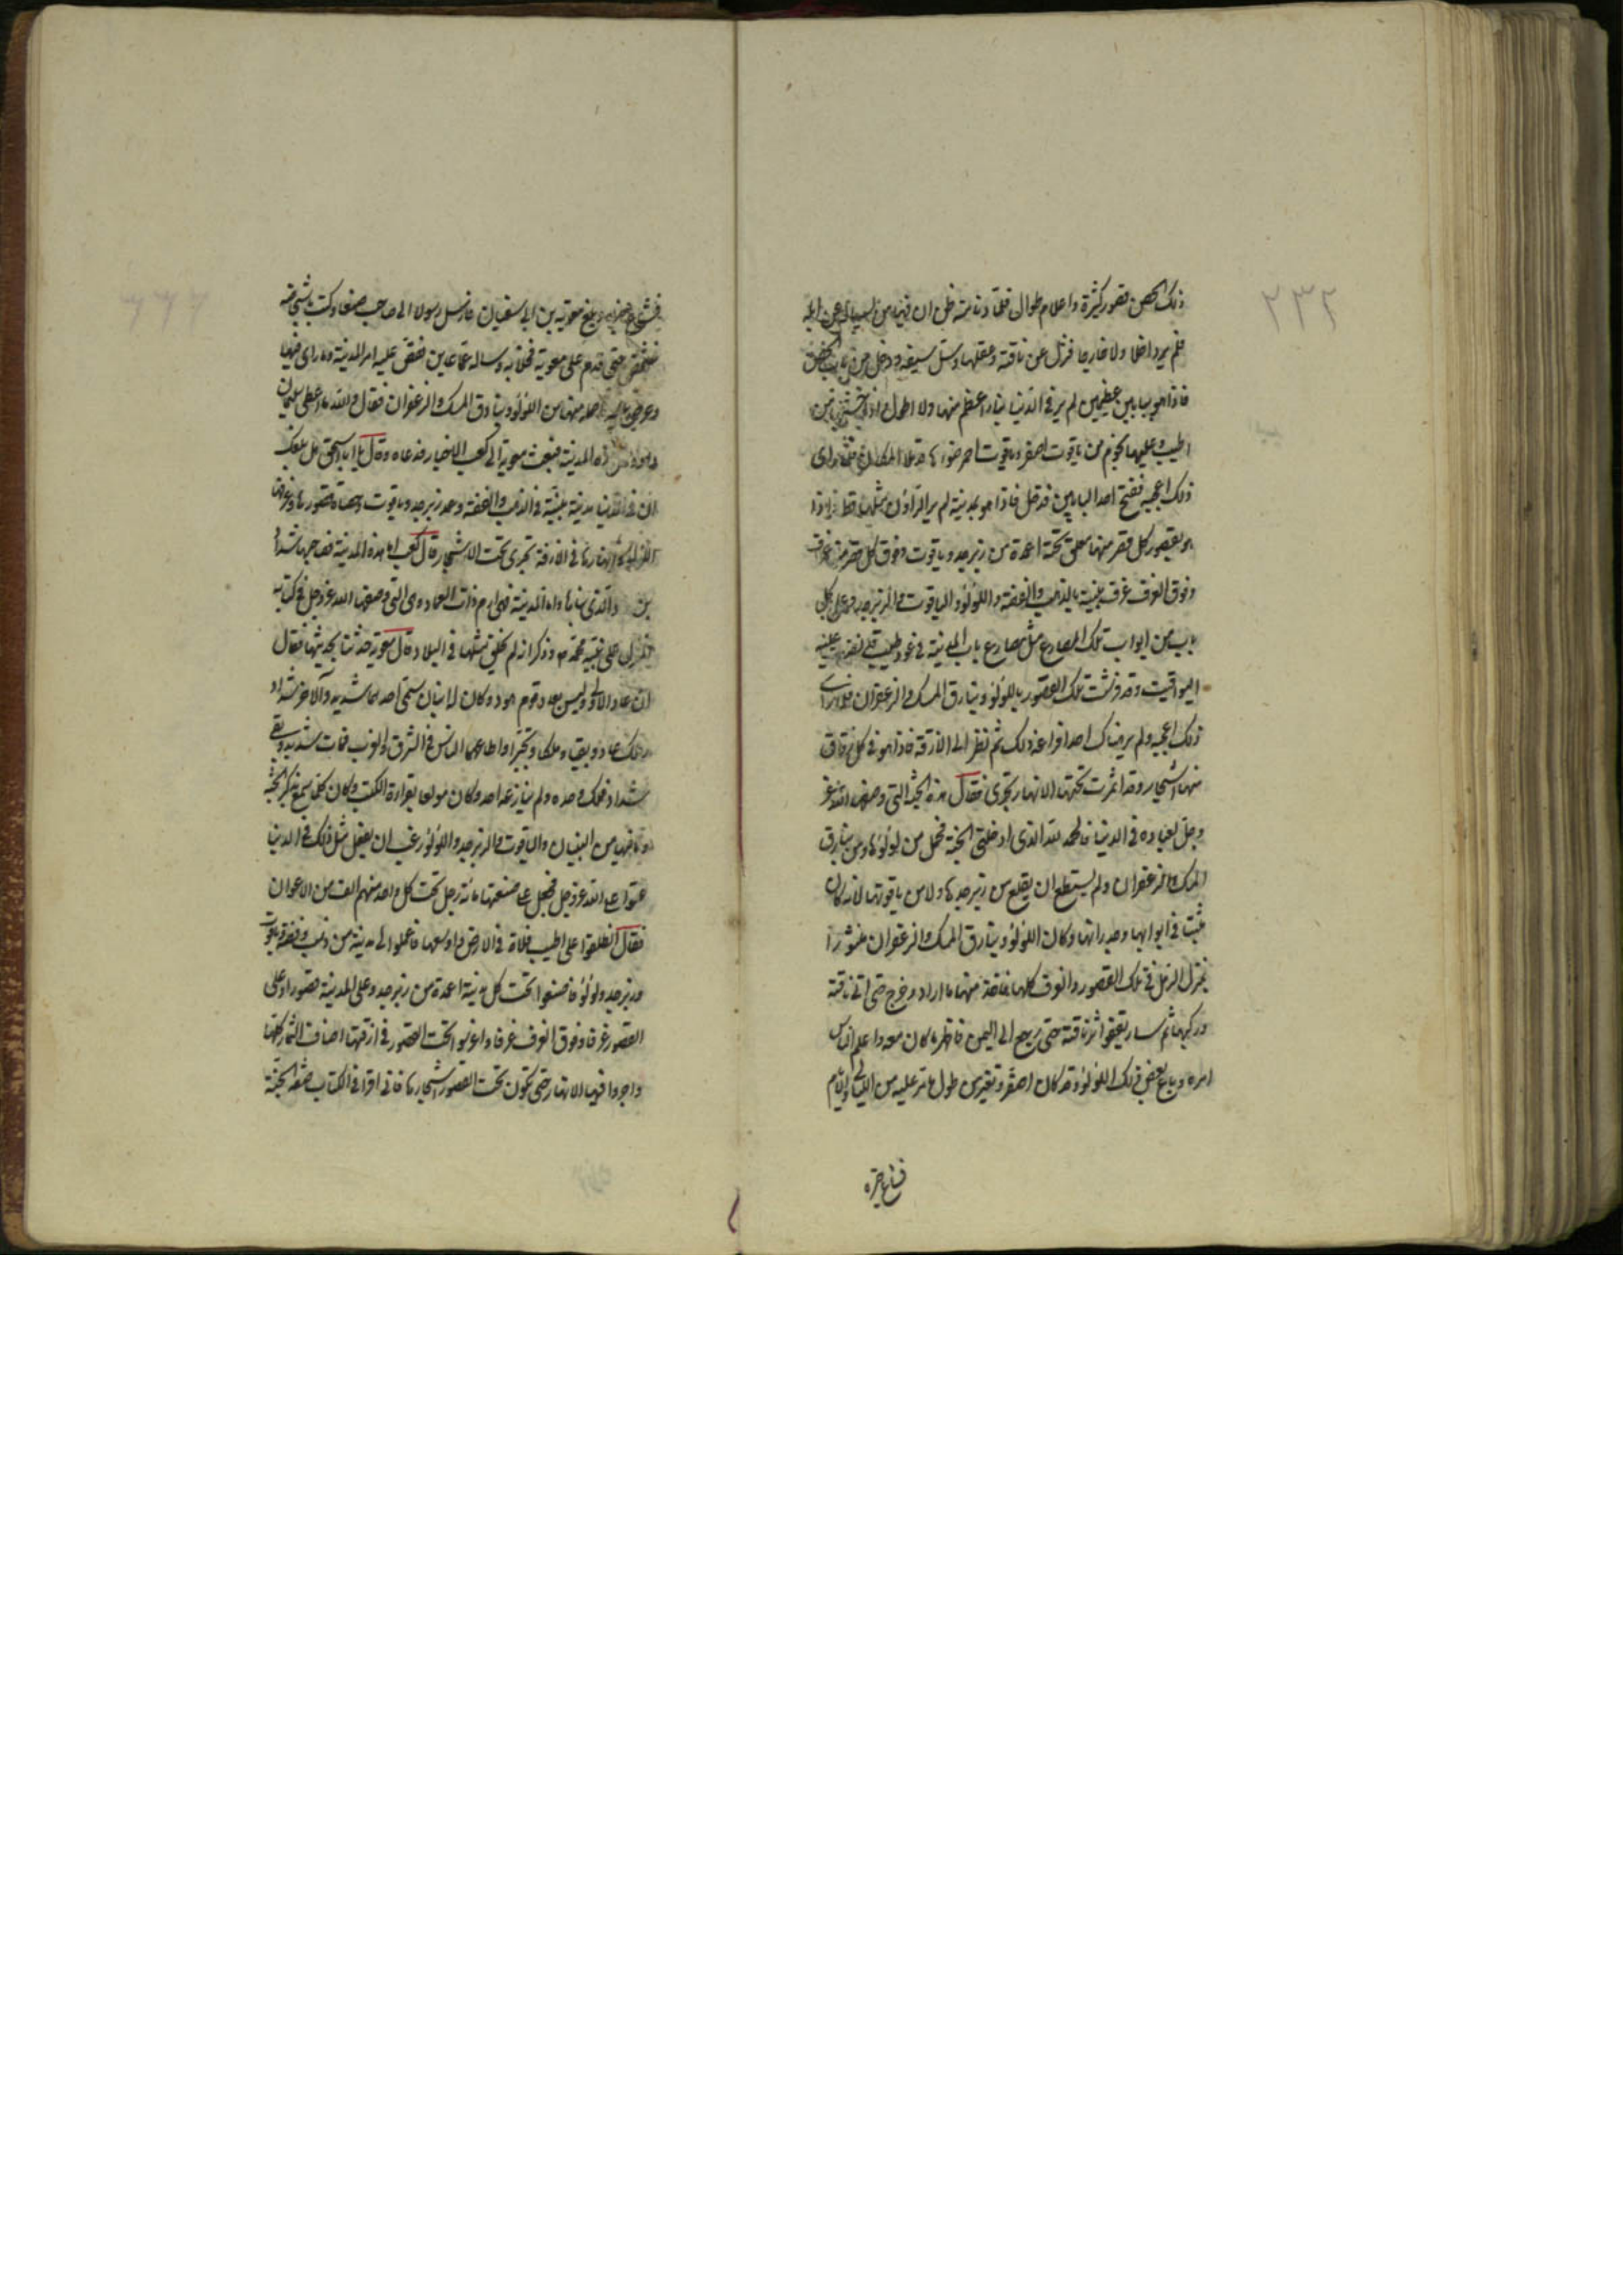 ٢٣٢
ذلك الحصن قصور كثيرة واعلام طوال فلما دنا منه ظن ان فيه من يسياله عن ابله
فلم ير داخلا ولا خارجا فنزل عن ناقته وعقلها وسل سيفه ودخل من باب الحصن
فاذا هو ببابين عظيمين لم ير فى الدنيا بناء اعظم منها ولا اطول اذا خشبها من
اطيب وعليها نجوم من ياقوت اصفر وياقوت احمر ضوءها قد ملأ المكان فلما راى
ذلك اعجبه ففتح احد البابين فدخل فاذا هو بمدينة لم ير الراؤن مثلها قط واذا
هو بقصور كل قصر منها معلق تحته اعمدة من زبرجد وياقوت وفوق كل قصر منها غرف
وفوق الغرف غرف مبنية بالذهب والفضة واللؤلؤ والياقوت والزبرجد وعلى كل
باب من ابواب تلك المصاريع مثل مصاريع باب المدينة فى عود طيب قد نضدت عليه
اليواقيت وقد فرشت تلك القصور باللؤلؤ وبنادق المسك والزعفران فلما راى
ذلك اعجبه ولم ير هناك احدا فافزعه ذلك ثم نظر الى الازقة فاذا هو فى كل زقاق
منها اشجار وقد اثمرت تحتها الانهار تجرى فقال هذه الجنة التى وصف الله عز
وجل لعباده فى الدنيا فالحمد لله الذى ادخلنى الجنة فحمل من لؤلؤها ومن بنادق
المسك والزعفران ولم يستطع ان يقلع من زبرجدها ولا من ياقوتها لانه كان
مثبتا فى ابوابها وجدرانها وكان اللؤلؤ وبنادق المسك والزعفران منثورا
بمنزل الرمل فى تلك القصور والغرف كلها فاخذ منها ما اراد وخرج حتى اتى ناقته
وركبها ثم سار يقفو اثر ناقته حتى رجع الى اليمن فاظهر ما كان معه واعلم الناس
امره وباع بعض ذلك اللؤلؤ وقد كان اصفر وتغير من طول ما مر عليه من الليالى والايام
فشاع خبره
فشاع خبره وبلغ معوية بن ابى سفيان فارسل رسولا الى صاحب صنعا وكتب باشخاصه
فشخص حتى قدم على معوية فخلا به وساله عما عاين فقص عليه امر المدينة وما راى فيها
وعرض عليه ما حمله منها من اللؤلؤ وبنادق المسك والزعفران فقال والله ما اعطى سليمان
مثل هذه المدينة فبعث معوية الى كعب الاحبار فدعاه وقال يا ابا اسحق هل بلغك
ان فى الدنيا مدينة مبنية فى الذهب والفضة وعمد زبرجد وياقوت وحصاء قصورها وغرفها
اللؤلؤ وانهارها فى الازقة تجرى تحت الاشجار قال كعب اما هذه المدينة فصاحبها شداد
بن عاد الذى بناها واما المدينة فهى ارم ذات العماد وهى التى وصفها الله عز وجل فى كتابه
المنزل على نبيه محمد ص وذكر انه لم يخلق مثلها فى البلاد قال معوية حدثنا بحديثها فقال
ان عاد الاولى وليس بعاد قوم هود وكان له ابنان سمى احدهما شديد والاخر شداد
فهلك عاد وبقيا وملكا وتجبرا واطاعهما الناس فى الشرق والغرب فمات شديد وبقى
شداد فملك وحده ولم ينازعه احد وكان مولعا بقراءة الكتب وكان كلما سمع بذكر الجنة
وما فيها من البنيان والياقوت والزبرجد واللؤلؤ رغب ان يفعل مثل ذلك فى الدنيا
عتوا على الله عز وجل فجعل على صنعتها مائة رجل تحت كل واحد منهم الف من الاعوان
فقال انطلقوا على اطيب فلاة فى الارض واوسعها فاعملوا لى مدينة من ذهب وفضة وياقوت
وزبرجد ولؤلؤ فاصنعوا تحت كل مدينة اعمدة من زبرجد وعلى المدينة قصورا وعلى
القصور غرفا وفوق الغرف غرفا واغرسوا تحت القصور فى ازقتها اصناف الثمار كلها
واجروا فيها الانهار حتى تكون تحت القصور اشجارها فانى اقرأ فى الكتاب صفة الجنة